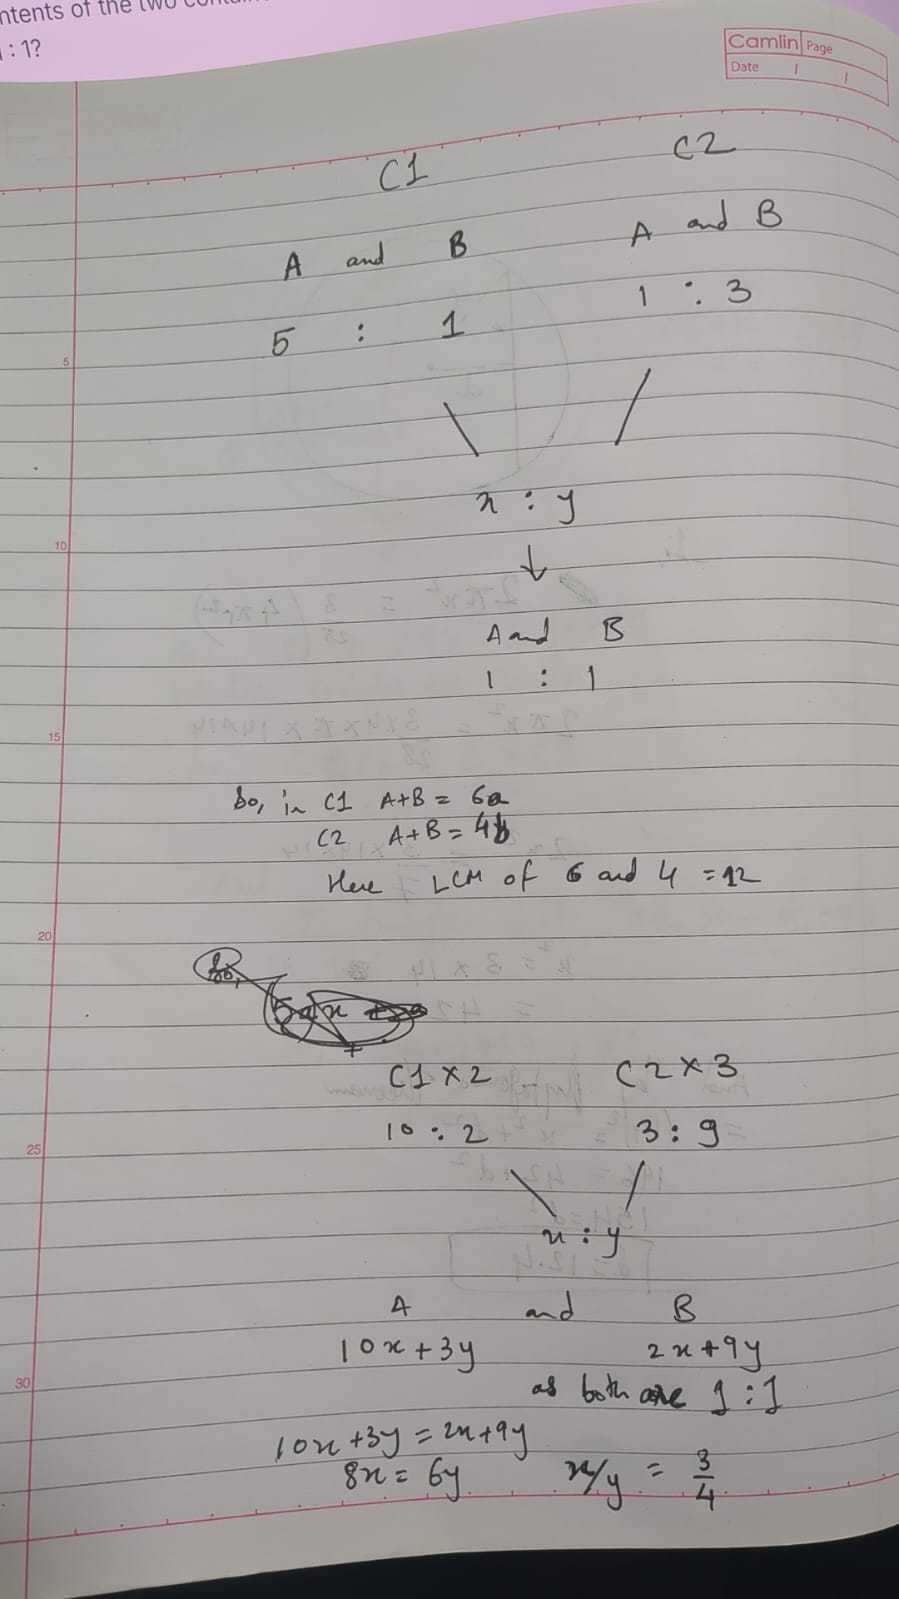 ntents of the two
: 1?
Camlin Page
Date / /
C1 C2
A and B A and B
5 : 1 1 : 3
5
x : y
10
↓
A and B
1 : 1
15
So, in C1 A+B = 6a
C2 A+B = 4b
Here LCM of 6 and 4 = 12
20
C1 × 2 C2 × 3
10 : 2 3 : 9
25
x : y
A and B
10x + 3y 2x + 9y
30
as both are 1 : 1
10x + 3y = 2x + 9y
8x = 6y x/y = 3/4